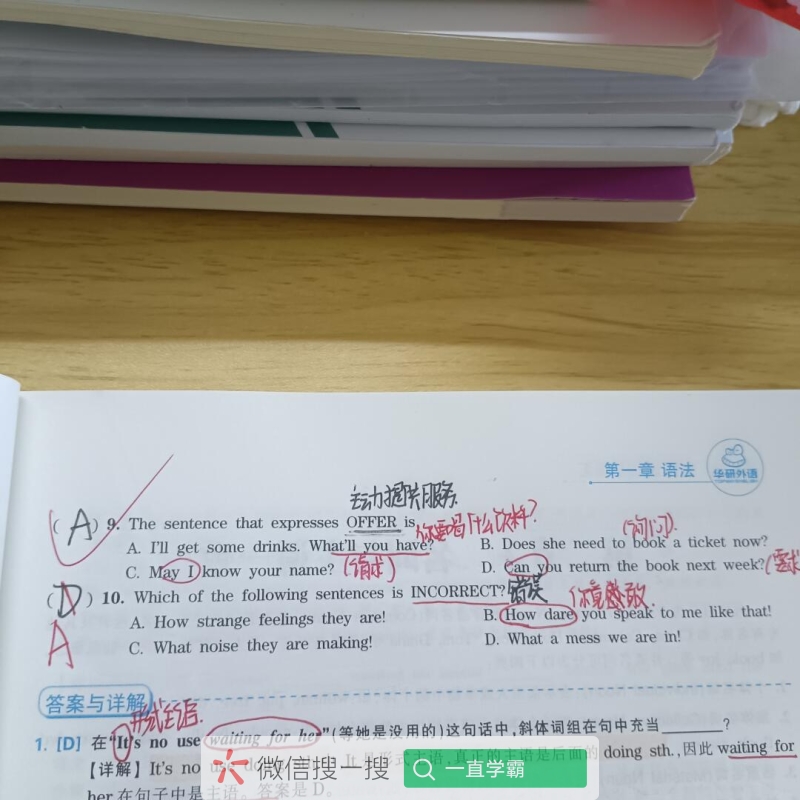 第一章 语法
华研外语
主动提供服务
(A) 9. The sentence that expresses OFFER is
你要喝什么饮料?
(询问).
A. I'll get some drinks. What'll you have?
B. Does she need to book a ticket now?
C. May I know your name? (请求)
D. Can you return the book next week? (要求
(D) 10. Which of the following sentences is INCORRECT? 错误
A
你竟敢
A. How strange feelings they are!
B. How dare you speak to me like that!
C. What noise they are making!
D. What a mess we are in!
答案与详解
形式主语.
1. [D] 在"It's no use waiting for her"(等她是没用的)这句话中,斜体词组在句中充当______?
【详解】It's no use doing 形式主语,真正的主语是后面的 doing sth.,因此 waiting for
her 在句子中是主语。答案是 D。
微信搜一搜
一直学霸